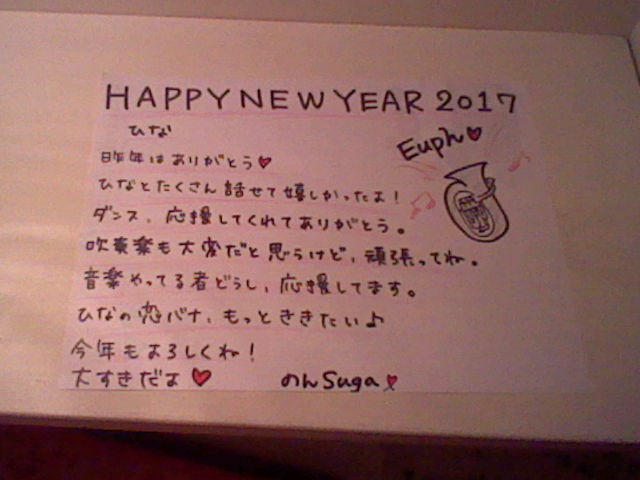 HAPPY NEW YEAR 2017
ひな
Euph♥
昨年はありがとう♥
ひなとたくさん話せて嬉しかったよ！
ダンス、応援してくれてありがとう。
吹奏楽も大変だと思うけど、頑張ってね。
音楽やってる者どうし、応援してます。
ひなの恋バナ、もっとききたい♪
今年もよろしくね！
大すきだよ♥
のんSuga♥